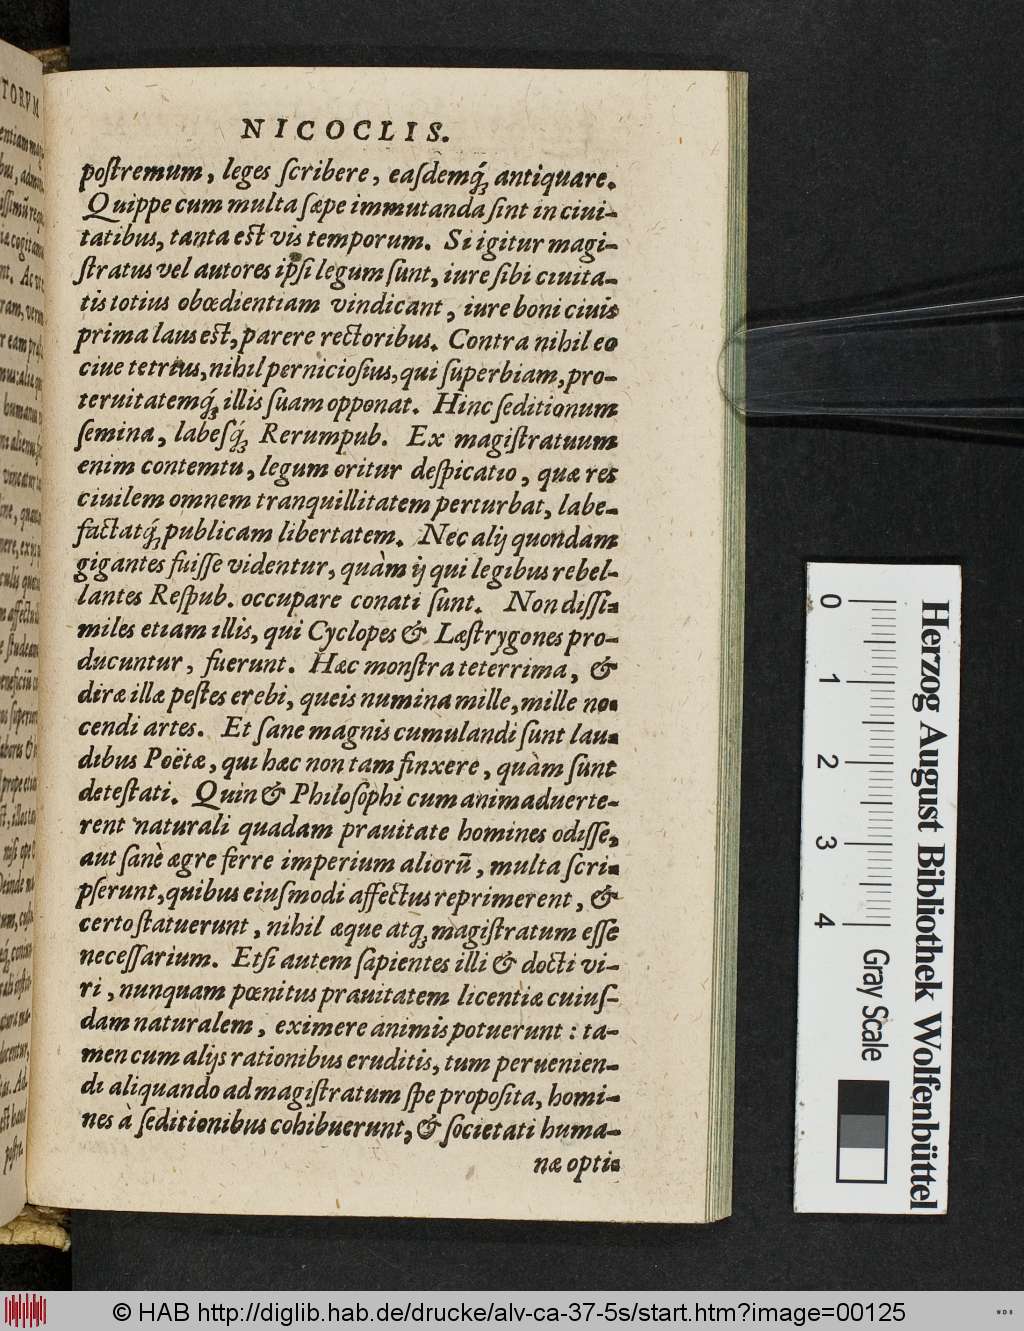 NICOCLIS.
poſtremum, leges ſcribere, eaſdemq́; antiquare.
Quippe cum multa ſæpe immutanda ſint in ciui-
tatibus, tanta eſt vis temporum. Si igitur magi-
ſtratus vel autores ipſi legum ſunt, iure ſibi ciuita-
tis totius obœdientiam vindicant, iure boni ciuis
prima laus eſt, parere rectoribus. Contra nihil eo
ciue tetrius, nihil pernicioſius, qui ſuperbiam, pro-
teruitatemq́; illis ſuam opponat. Hinc ſeditionum
ſemina, labeſq́; Rerumpub. Ex magiſtratuum
enim contemtu, legum oritur deſpicatio, quæ res
ciuilem omnem tranquillitatem perturbat, labe-
factatq́; publicam libertatem. Nec alij quondam
gigantes fuiſſe videntur, quàm ij qui legibus rebel-
lantes Reſpub. occupare conati ſunt. Non diſſi-
miles etiam illis, qui Cyclopes & Læſtrygones pro-
ducuntur, fuerunt. Hæc monſtra teterrima, &
diræ illæ peſtes erebi, queis numina mille, mille no-
cendi artes. Et ſane magnis cumulandi ſunt lau-
dibus Poëtæ, qui hæc non tam finxere, quàm ſunt
deteſtati. Quin & Philoſophi cum animaduerte-
rent naturali quadam prauitate homines odiſſe,
aut ſanè ægre ferre imperium aliorū, multa ſcri-
pſerunt, quibus eiuſmodi affectus reprimerent, &
certo ſtatuerunt, nihil æque atq; magiſtratum eſſe
neceſſarium. Etſi autem ſapientes illi & docti vi-
ri, nunquam pœnitus prauitatem licentiæ cuiuſ-
dam naturalem, eximere animis potuerunt: ta-
men cum alijs rationibus eruditis, tum peruenien-
di aliquando ad magiſtratum ſpe propoſita, homi-
nes à ſeditionibus cohibuerunt, & ſocietati huma-
næ opti-
Herzog August Bibliothek Wolfenbüttel
0 1 2 3 4
Gray Scale
© HAB http://diglib.hab.de/drucke/alv-ca-37-5s/start.htm?image=00125